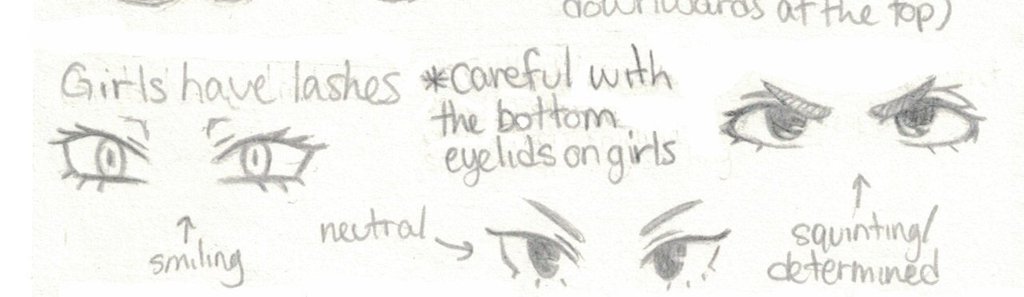 downwards at the top)
Girls have lashes
*Careful with
the bottom
eyelids on girls
smiling
neutral
squinting/
determined